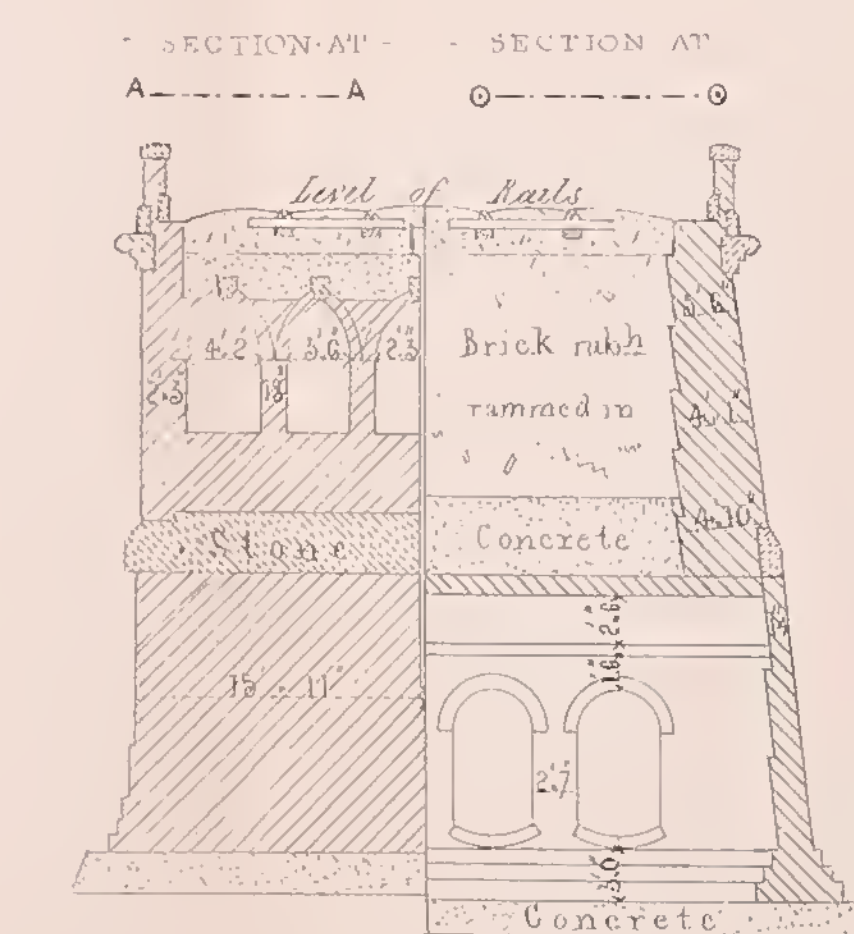 SECTION·AT - - SECTION AT
A A ⊙ ⊙
Level of Rails
4'.2" 3'.6" 2'.3"
2'.3" 18"
Brick rubb
rammed in
4'.1"
4'.10"
Stone
Concrete
15'.11"
2'.7"
3'.0"
Concrete